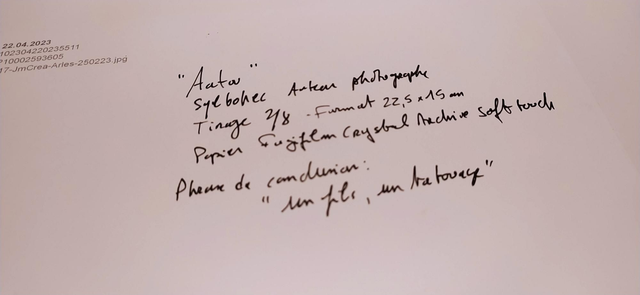 22.04.2023
102304220235511
P10002593605
17-JmCrea-Arles-250223.jpg
"Aata"
Sylbohec Auteur photographe
Tirage 2/8 - Format 22,5 x 15 cm
Papier Fujifilm Crystal Archive Soft touch
Phrase de conclusion:
"un fils, un tatouage"